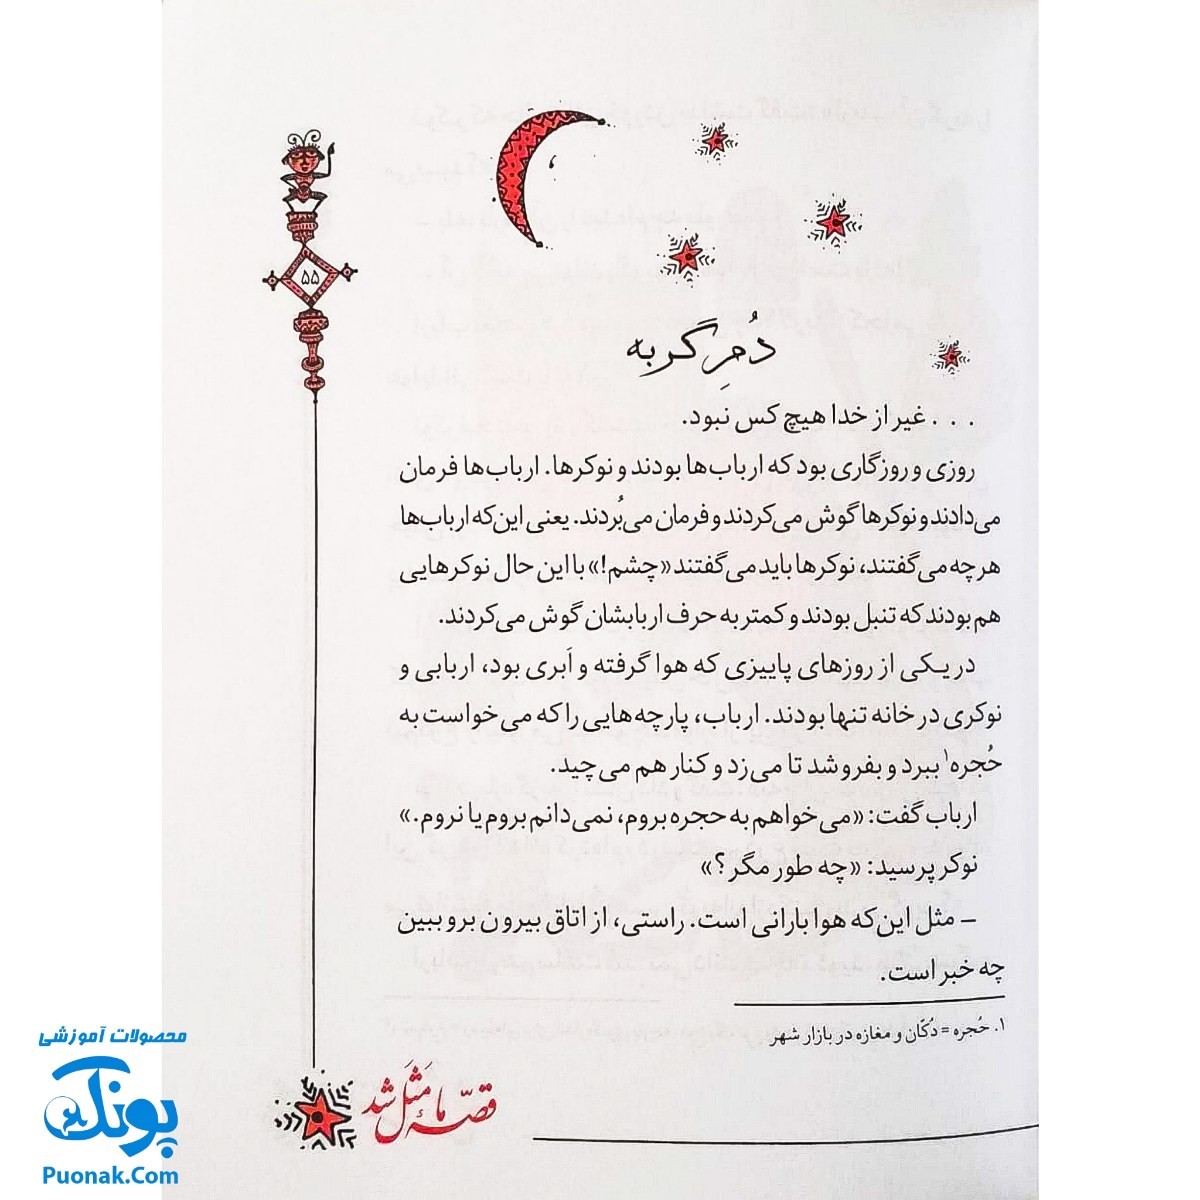 ۵۵
دُمِ گربه
. . . غیر از خدا هیچ کس نبود.
روزی و روزگاری بود که ارباب‌ها بودند و نوکرها. ارباب‌ها فرمان
می‌دادند و نوکرها گوش می‌کردند و فرمان می‌بُردند. یعنی این‌که ارباب‌ها
هر چه می‌گفتند، نوکرها باید می‌گفتند «چشم!» با این حال نوکرهایی
هم بودند که تنبل بودند و کمتر به حرف اربابشان گوش می‌کردند.
در یکی از روزهای پاییزی که هوا گرفته و اَبری بود، اربابی و
نوکری در خانه تنها بودند. ارباب، پارچه‌هایی را که می‌خواست به
حُجره۱ ببرد و بفروشد تا می‌زد و کنار هم می‌چید.
ارباب گفت: «می‌خواهم به حجره بروم، نمی‌دانم بروم یا نروم.»
نوکر پرسید: «چه طور مگر؟»
– مثل این‌که هوا بارانی است. راستی، از اتاق بیرون برو ببین
چه خبر است.
۱. حُجره = دُکّان و مغازه در بازار شهر
قصّه ما مَثَل شد
محصولات آموزشی
پونک
Puonak.Com